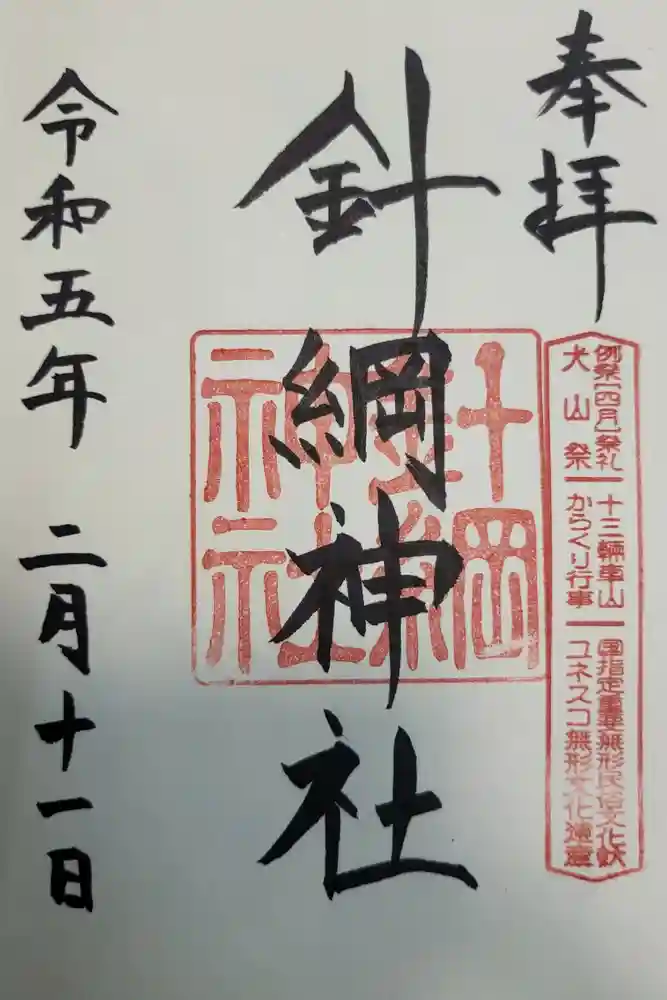 奉拝
例祭[四月]祭礼 十三輌車山 国指定重要無形民俗文化財
犬山祭 からくり行事 ユネスコ無形文化遺産
針綱神社
針綱
神社
令和五年 二月十一日